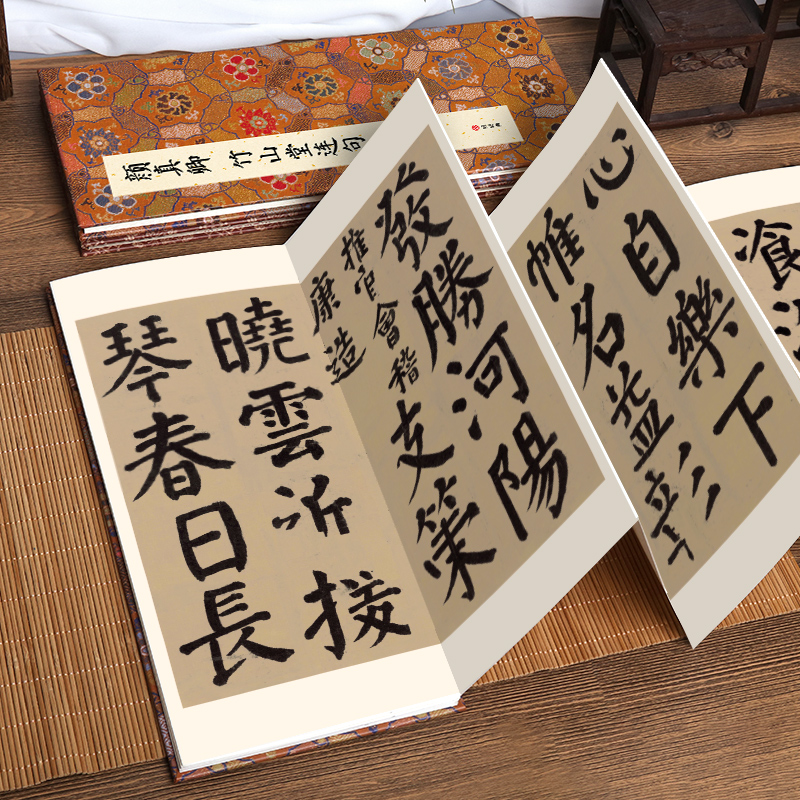 顏真卿 竹山堂連句
飡
心自樂下
帷名益彰
發勝河陽
推官會稽
康造
支策
曉雲近援
琴春日長